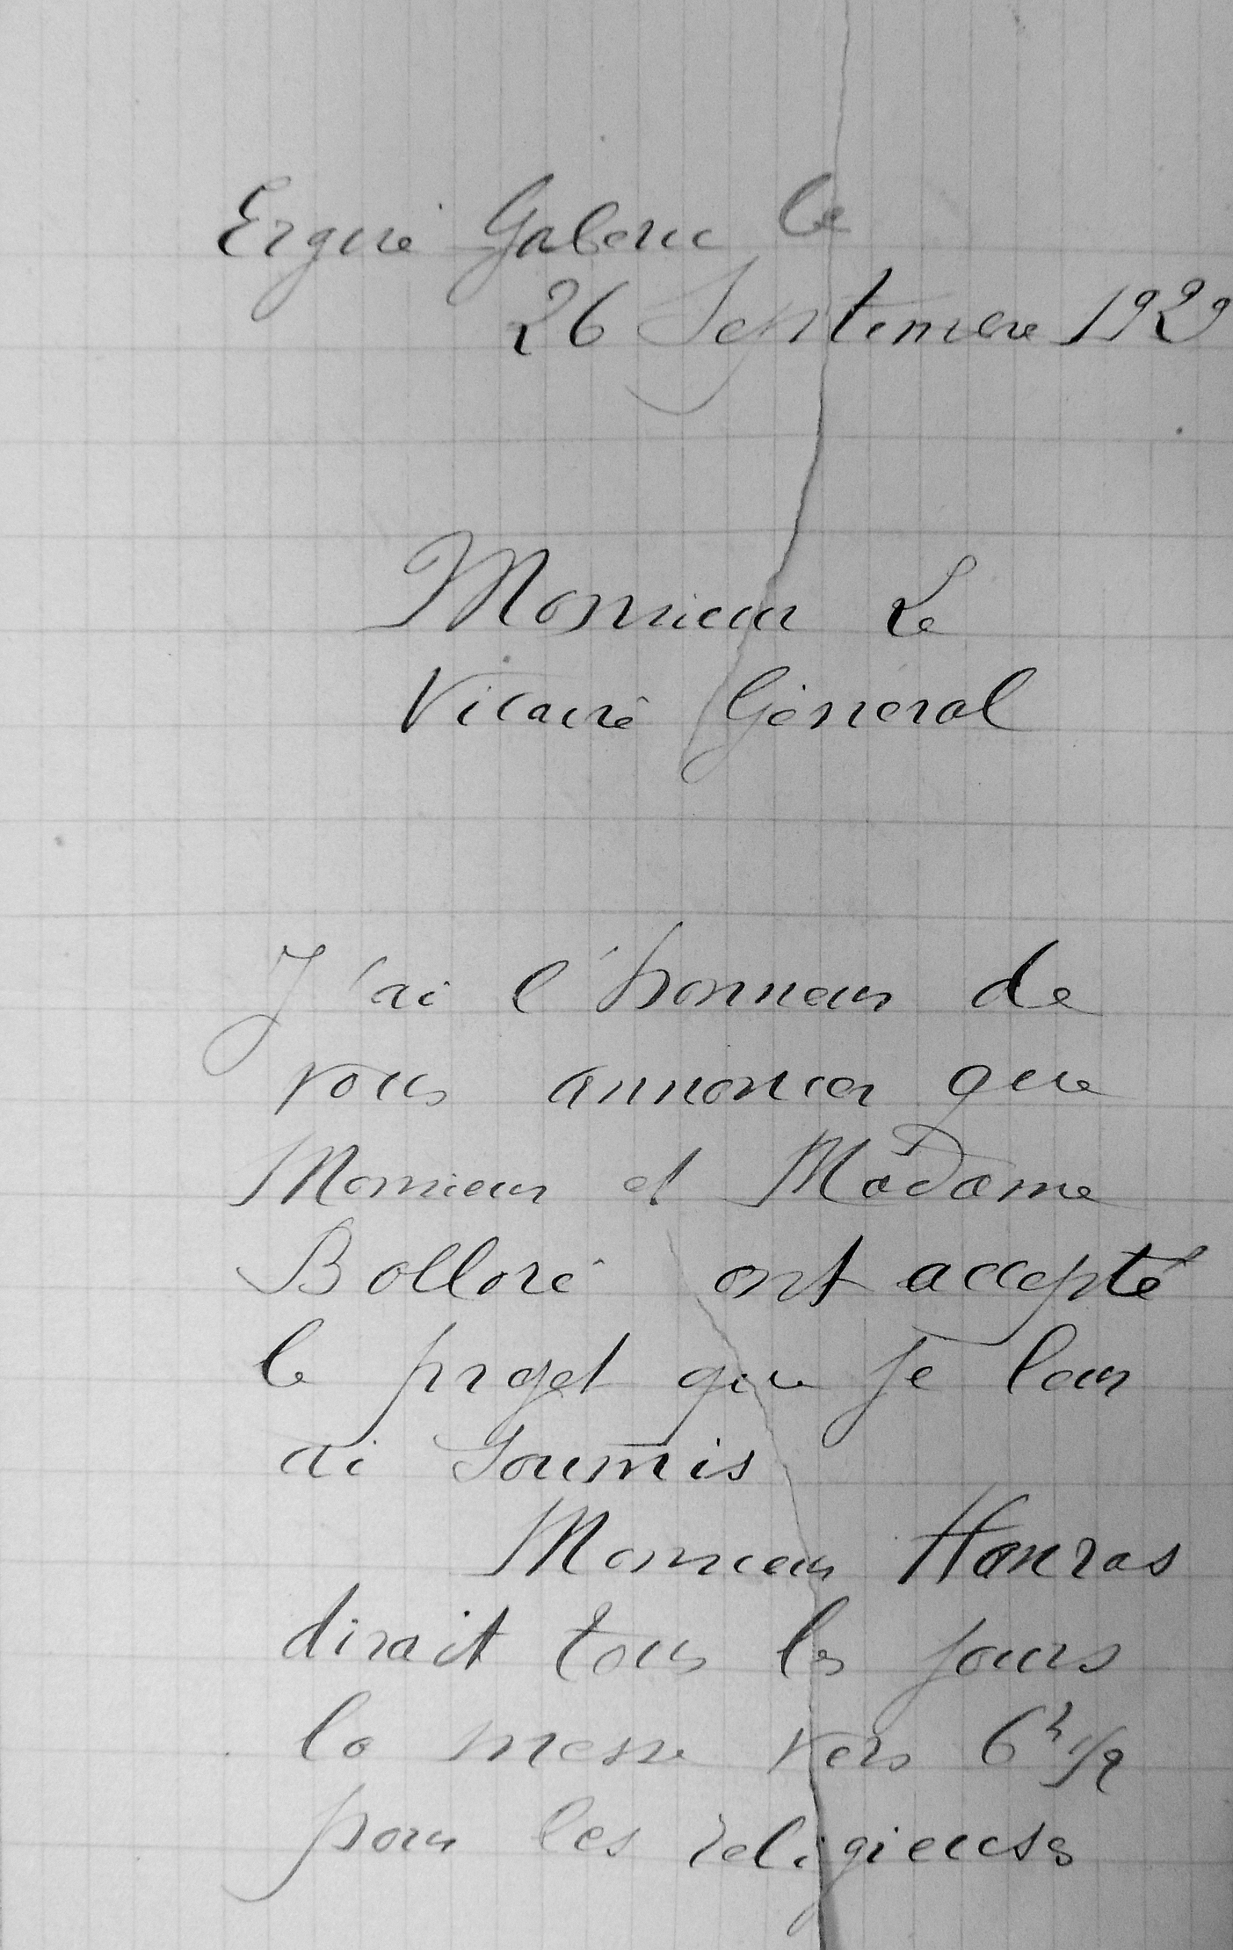 Ergué Gaberic le
26 Septembre 1929
Monsieur Le
Vicaire Général
J'ai l'honneur de
vous annoncer que
Monsieur et Madame
Bolloré ont accepté
le projet que je leur
ai soumis
Monsieur Hanras
dirait tous les jours
la messe vers 6h 1/2
pour les religieuses